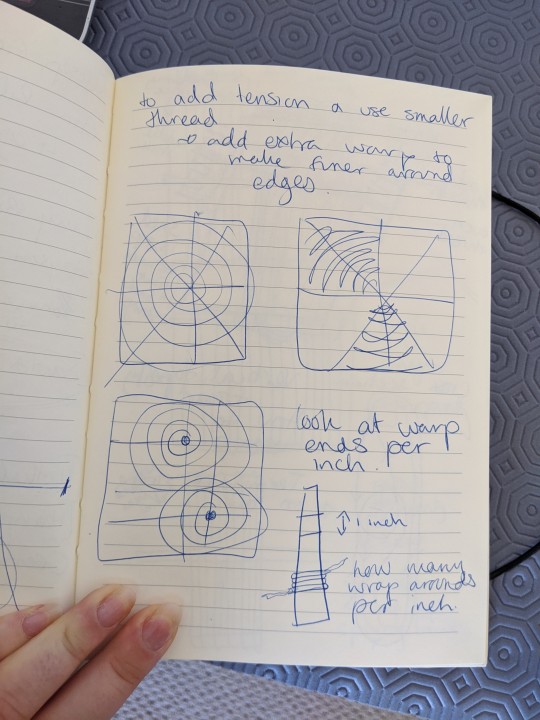 to add tension a use smaller
thread
→ add extra warp to
make finer around
edges.
look at warp
ends per
inch.
1 inch
how many
wrap arounds
per inch.